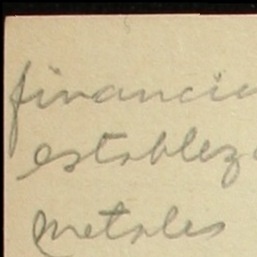 financie
establez
metales